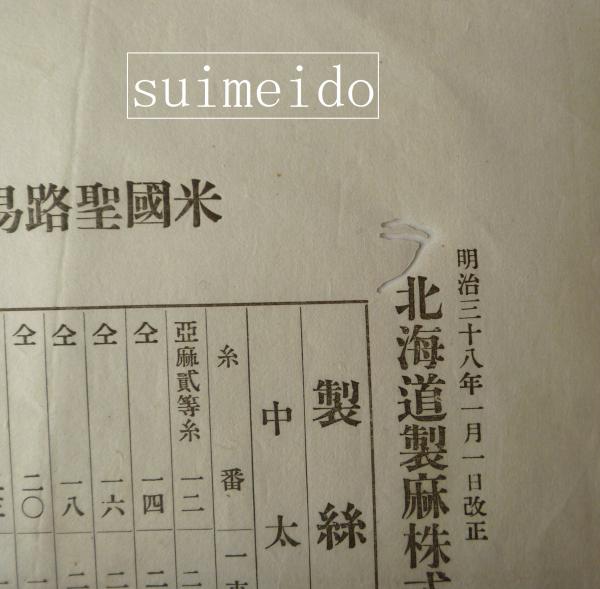 suimeido
米國聖路易
明治三十八年一月一日改正
北海道製麻株式
製絲
中太
糸番
亞麻貳等糸 一二
仝 一四
仝 一六
仝 一八
仝 二〇
仝